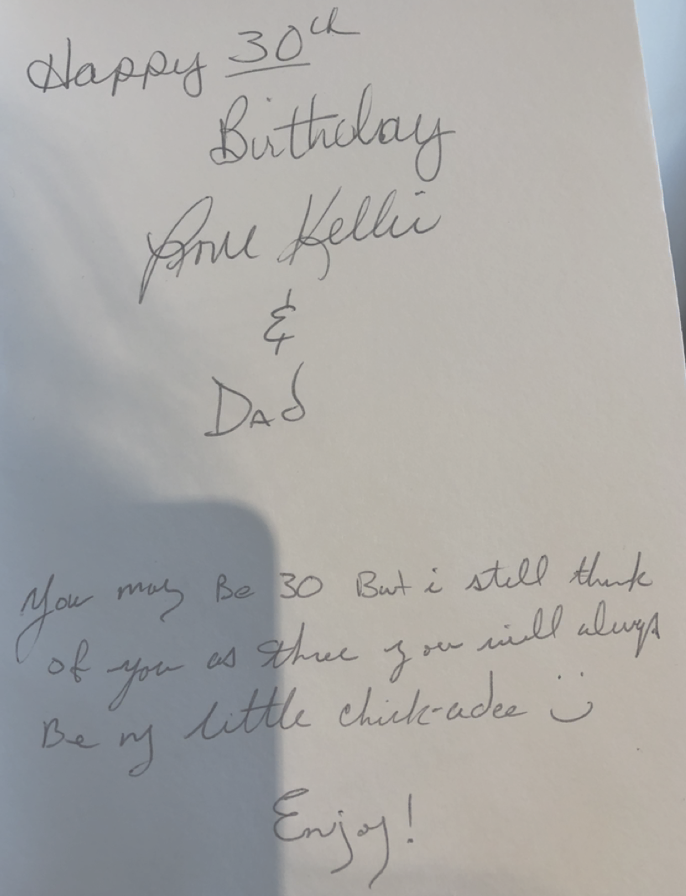 Happy 30th
Birthday
Love Kellie
&
Dad
You may Be 30 But i still think
of you as three you will always
Be my little chick-adee :)
Enjoy!